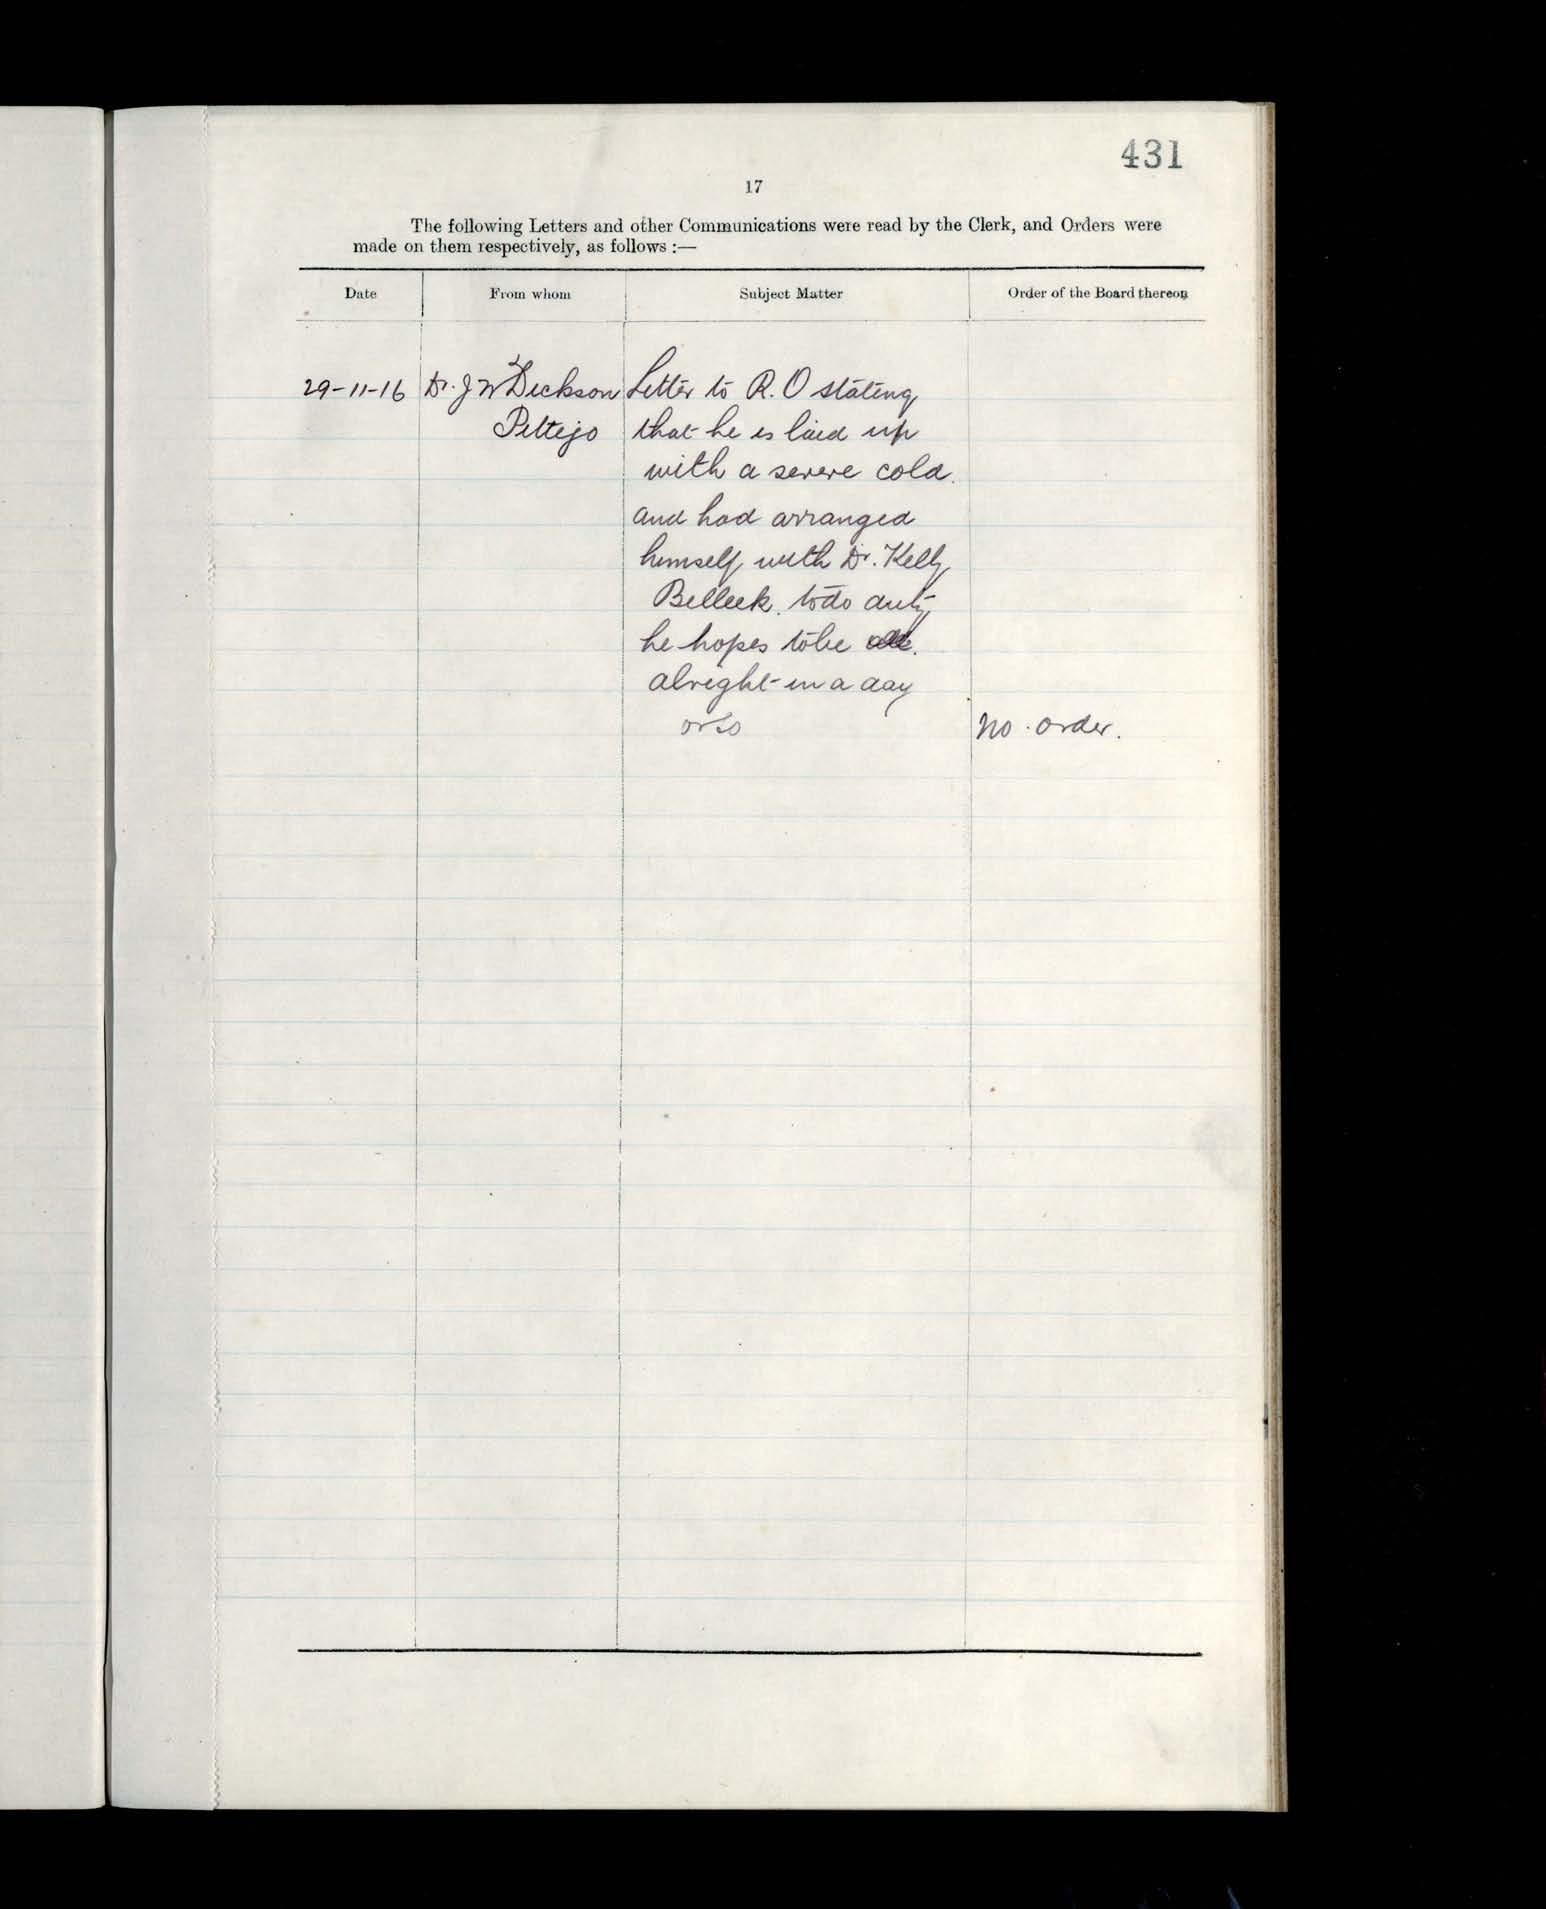 431
17
The following Letters and other Communications were read by the Clerk, and Orders were
made on them respectively, as follows :—
Date From whom Subject Matter Order of the Board thereon
29-11-16 Dr. J W Dickson Letter to R. O stating
Pettigo that he is laid up
with a severe cold.
and had arranged
himself with Dr. Kelly
Belleek. to do duty
he hopes to be
alright in a day
or so No. order.